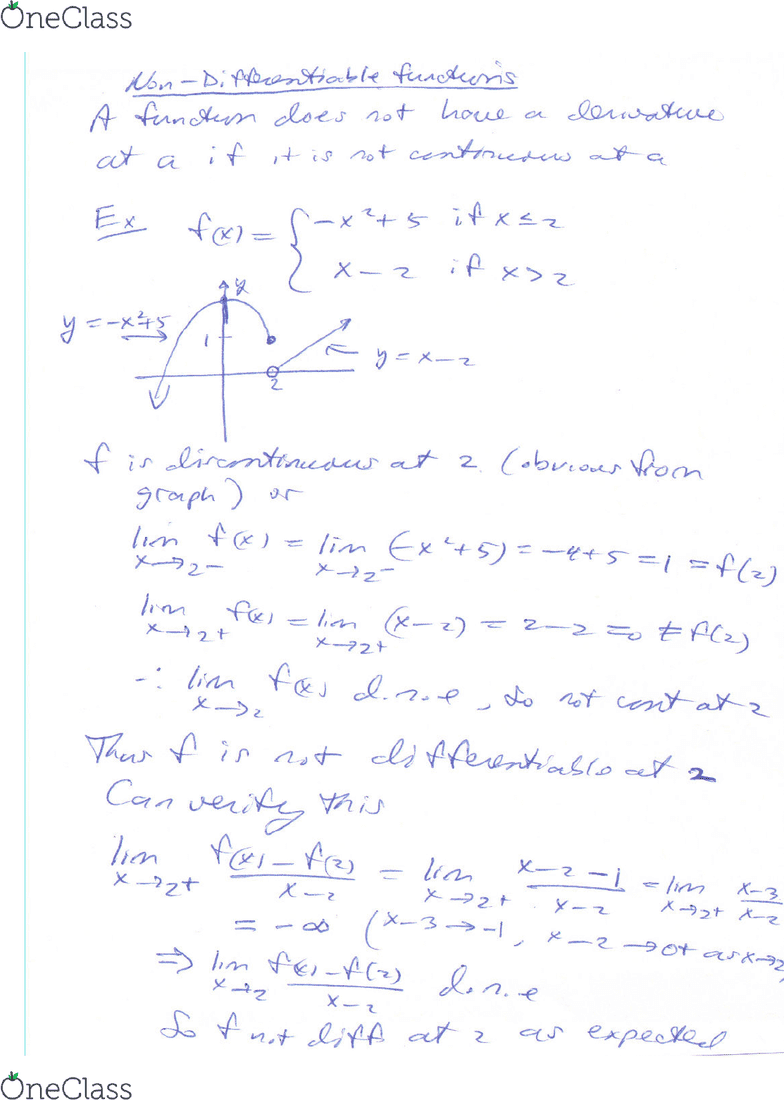 OneClass
Non-Differentiable functions
A function does not have a derivative
at a if it is not continuous at a
Ex f(x) = { -x²+5 if x ≤ 2
x-2 if x > 2
y
y = -x²+5
1
y = x-2
2
f is discontinuous at 2. (obvious from
graph) or
lim x→2- f(x) = lim x→2- (-x²+5) = -4+5 = 1 = f(2)
lim x→2+ f(x) = lim x→2+ (x-2) = 2-2 = 0 ≠ f(2)
∴ lim x→2 f(x) d.n.e, so not cont at 2
Thus f is not differentiable at 2
Can verify this
lim x→2+ (f(x)-f(2))/(x-2) = lim x→2+ (x-2-1)/(x-2) = lim x→2+ (x-3)/(x-2)
= -∞ (x-3→-1, x-2→0+ as x→2
⇒ lim x→2 (f(x)-f(2))/(x-2) d.n.e
So f not diff at 2 as expected
OneClass